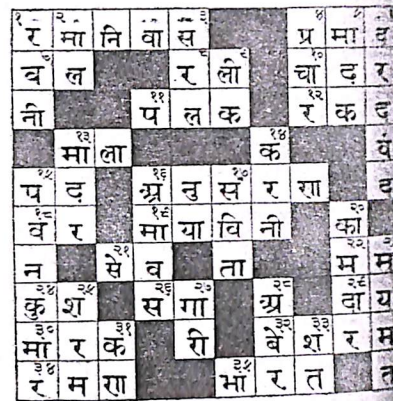 १ र २ मा नि वा ३ स ४ प्र ५ मा द
व ल र ली १० चा द र
नी ११ प ल क १२ र क द
१३ मा ला १४ क पं
१५ प द १६ अ नु १७ स र रा द
१८ व र १९ मा या वि नी २० का
न २१ से व ता २२ म म
२४ कु २५ श २६ स २७ गा २८ अ २९ दा य
३० मां र ३१ क री ३२ बे ३३ श र म
३४ र म रा ३५ भा र त त